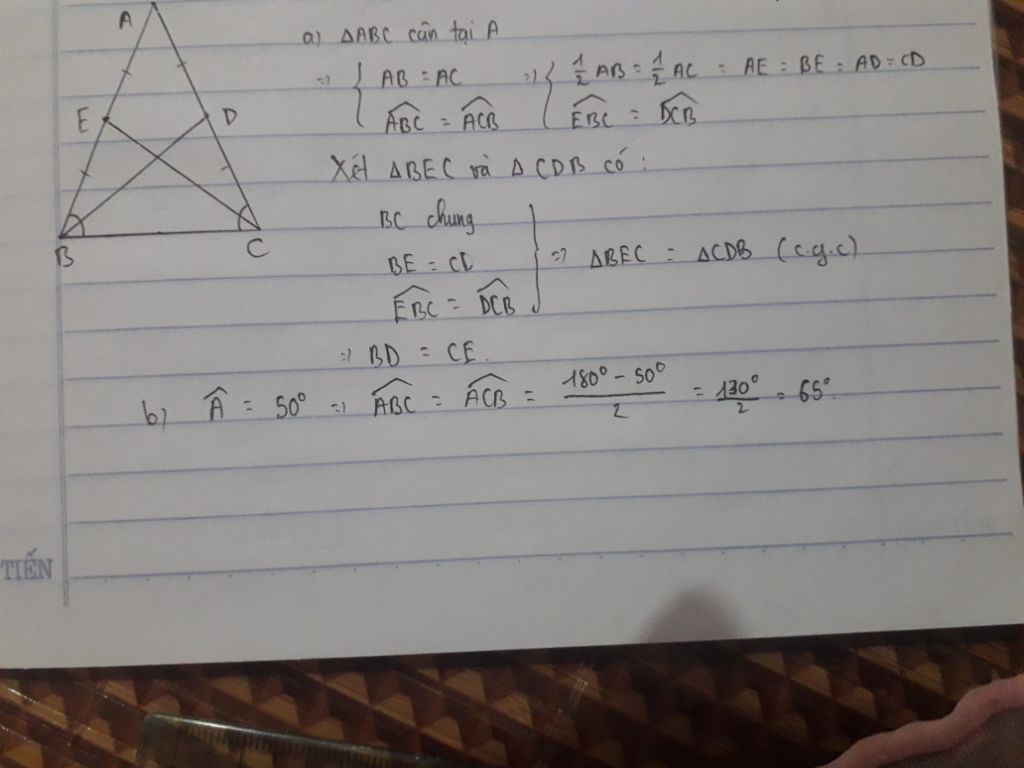 A
E
D
B
C
a) ΔABC cân tại A
=> { AB = AC => { 1/2 AB = 1/2 AC = AE = BE = AD = CD
ABC = ACB EBC = DCB
Xét ΔBEC và ΔCDB có:
BC chung
BE = CD
EBC = DCB } => ΔBEC = ΔCDB (c.g.c)
=> BD = CE.
b) A = 50° => ABC = ACB = (180° - 50°)/2 = 130°/2 = 65°.
TIẾN